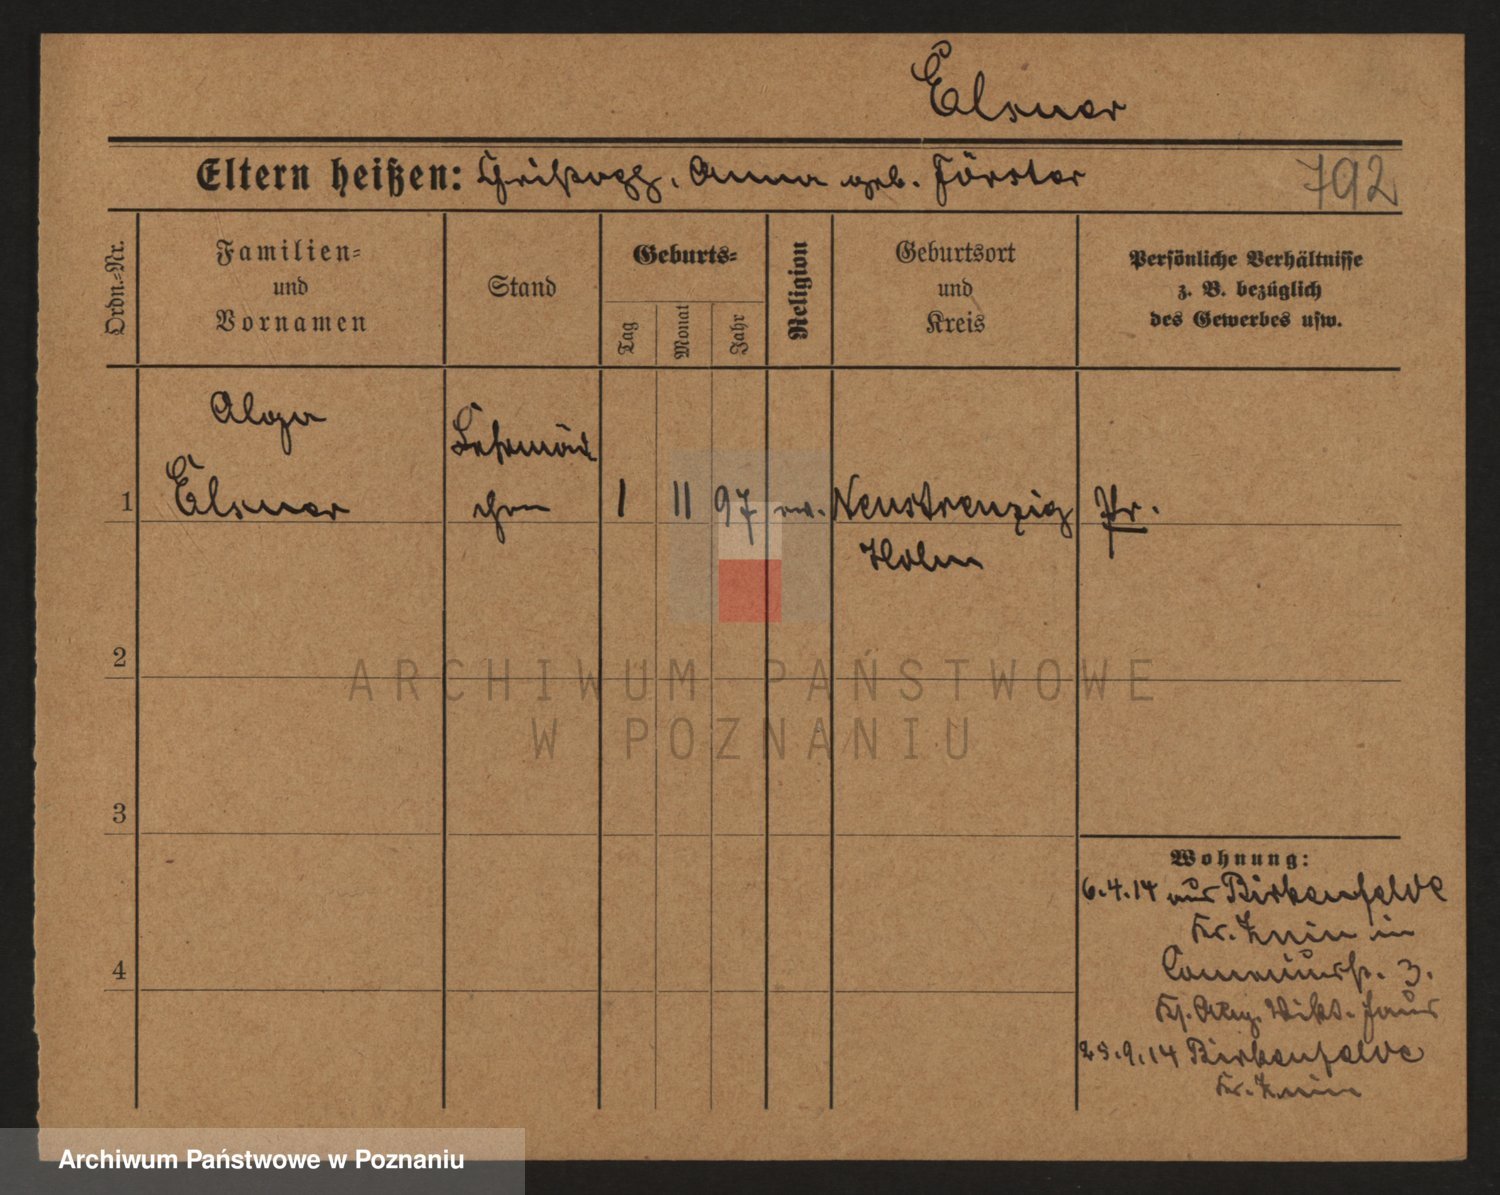 Elsner
Eltern heißen: Anna geb. Förster
792
Ordn.=Nr.
Familien=
und
Vornamen
Stand
Geburts=
Tag
Monat
Jahr
Religion
Geburtsort
und
Kreis
Persönliche Verhältnisse
z. B. bezüglich
des Gewerbes usw.
Elsner
Lehrmäd
chen
1
1 11 97 ev. Neustrenzig Pr.
2
3
4
Wohnung:
6.4.14 aus Birkenfelde
Kr. Znin in
3.
Haus
25.9.14 Birkenfelde
Kr. Znin
ARCHIWUM PAŃSTWOWE
W POZNANIU
Archiwum Państwowe w Poznaniu